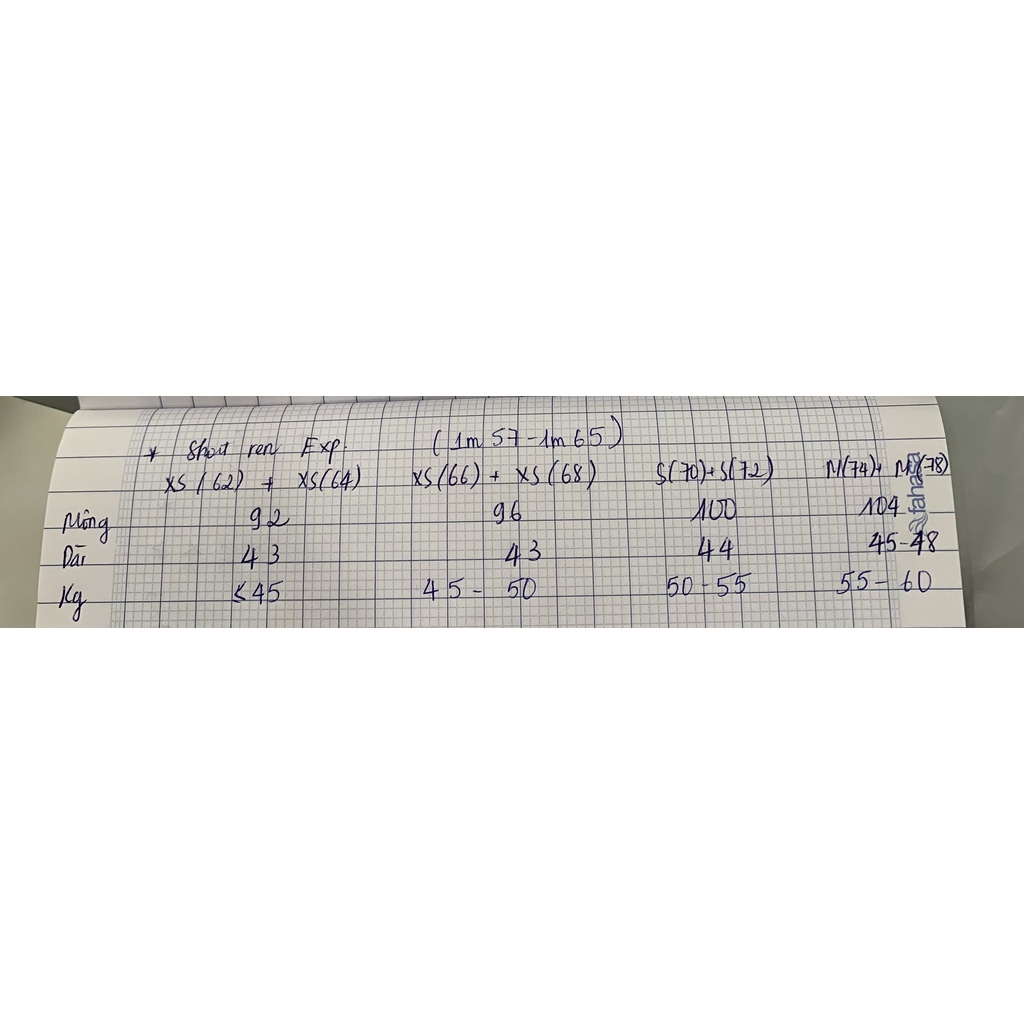 * Short ren Exp. (1m57-1m65)
XS (62) + XS(64) XS(66) + XS (68) S(70)+S(72) M(74)+ M(78)
Mông 92 96 100 104
Dài 43 43 44 45-48
Kg ≤45 45- 50 50-55 55- 60
fahasa